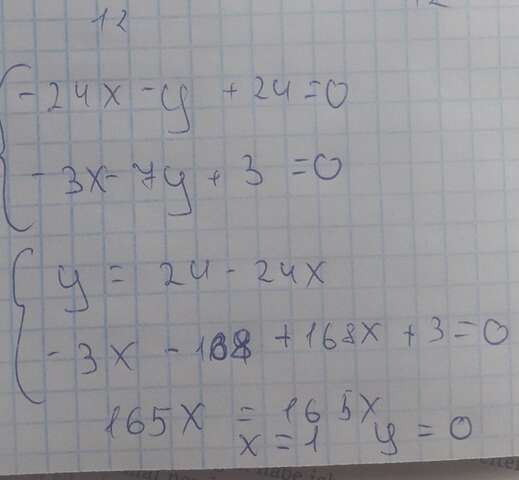 12
-24x - y + 24 = 0
-3x - 7y + 3 = 0
y = 24 - 24x
-3x - 168 + 168x + 3 = 0
165x = 165x
x = 1 y = 0